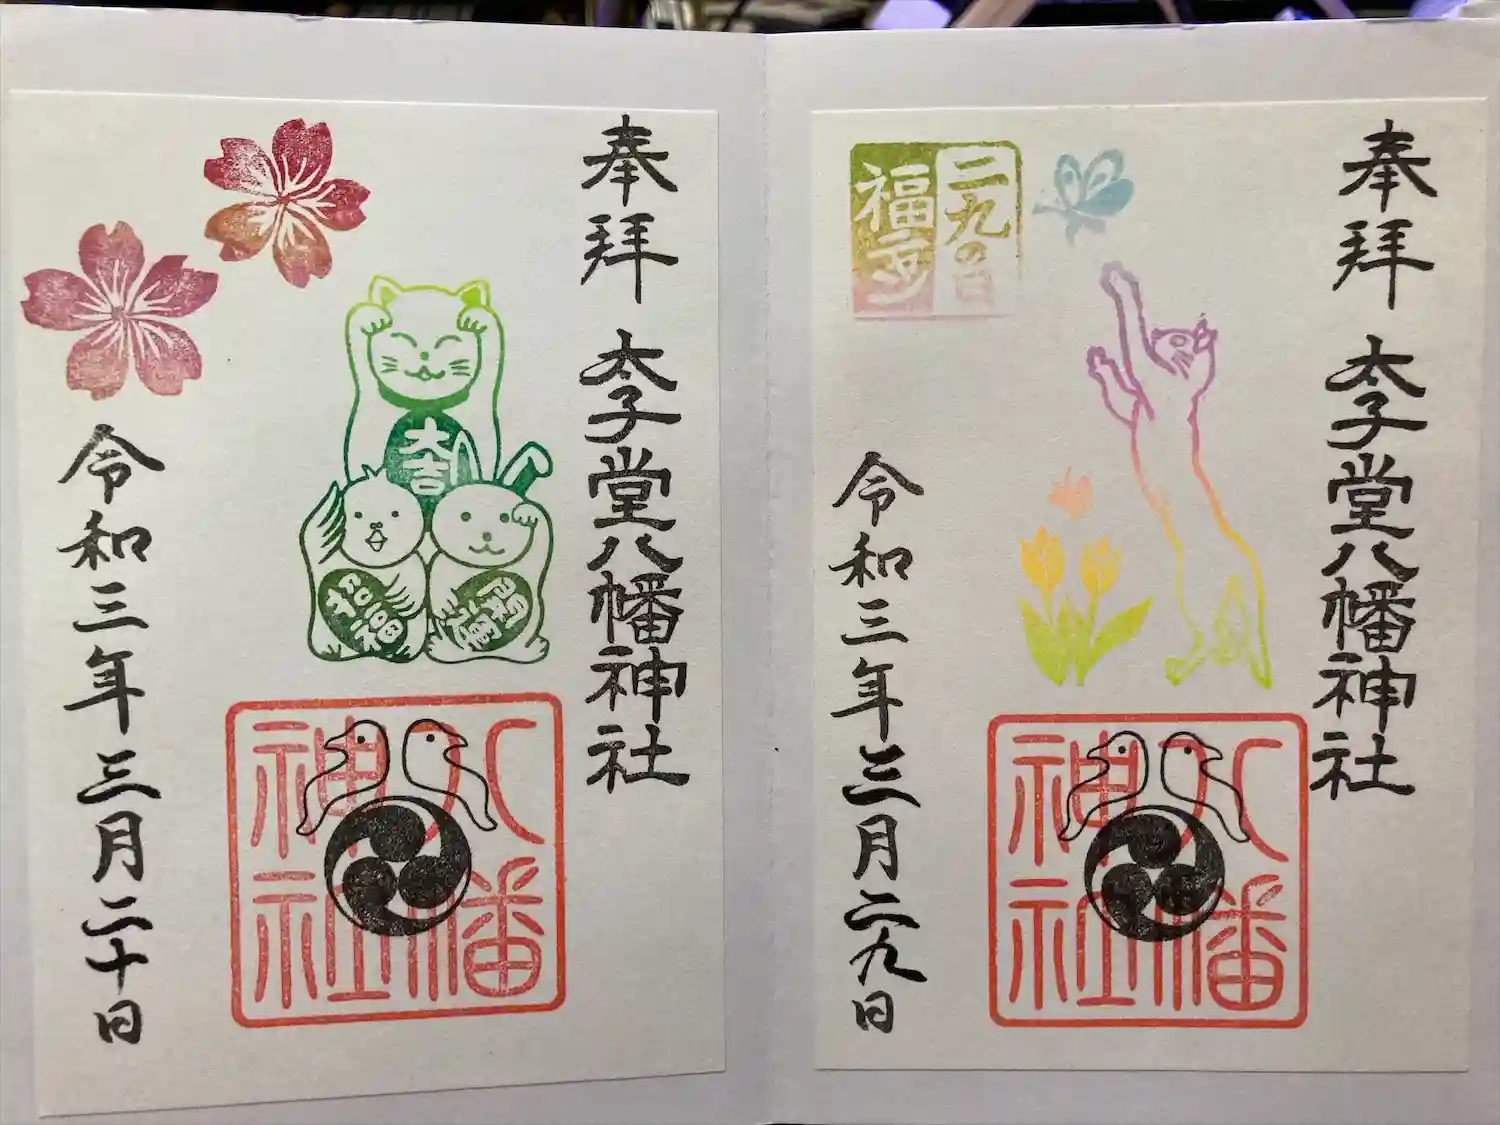 奉拝
太子堂八幡神社
大吉
招福
開運
八幡
神社
令和三年三月二十日
奉拝
太子堂八幡神社
二九の日
福子
八幡
神社
令和三年三月二九日